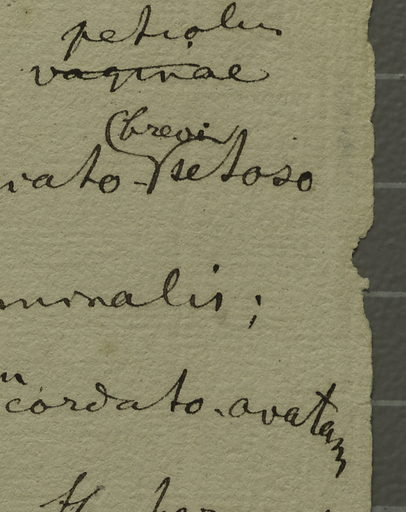 petiolus
vaginae
(brevi
iato-setoso
minalis;
cordato-ovatam